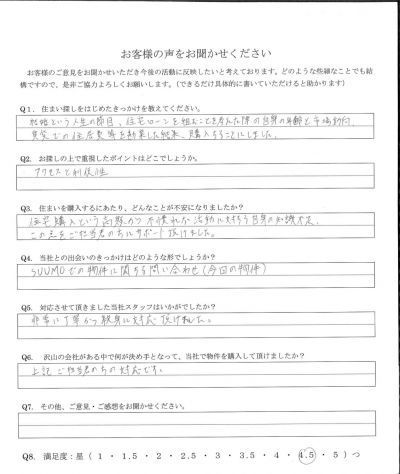 お客様の声をお聞かせください
お客様のご意見をお聞かせいただき今後の活動に反映したいと考えております。どのような些細なことでも結
構ですので、是非ご協力よろしくお願いします。(できるだけ具体的に書いていただけると助かります)
Q1. 住まい探しをはじめたきっかけを教えてください。
結婚という人生の節目、住宅ローンを組むことを考えた際の自身の年齢と市場動向、
賃貸での住居費等を勘案した結果、購入することにしました。
Q2. お探しの上で重視したポイントはどこでしょうか。
アクセスと利便性
Q3. 住まいを購入するにあたり、どんなことが不安になりましたか?
住宅購入という高額かつ不慣れな活動に対する自身の知識不足。
この点をご担当者の方にサポート頂けました。
Q4. 当社との出会いのきっかけはどのような形でしょうか?
SUUMOでの物件に関する問い合わせ(今回の物件)
Q5. 対応させて頂きました当社スタッフはいかがでしたか?
非常に丁寧かつ親身に対応頂けました。
Q6. 沢山の会社がある中で何が決め手となって、当社で物件を購入して頂けましたか?
上記ご担当者の方の対応です。
Q7. その他、ご意見・ご感想をお聞かせください。
Q8. 満足度:星 ( 1 ・ 1.5 ・ 2 ・ 2.5 ・ 3 ・ 3.5 ・ 4 ・ 4.5 ・ 5 ) つ